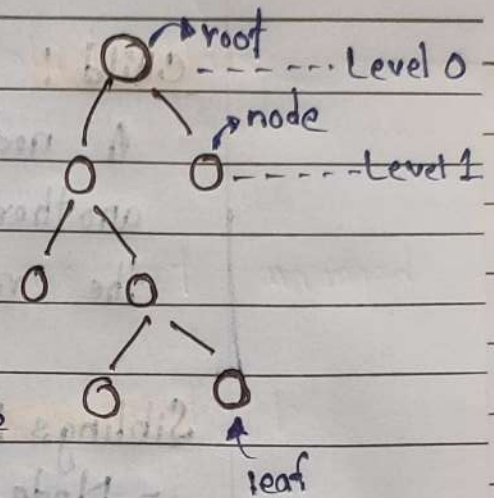 root
Level 0
node
Level 1
leaf